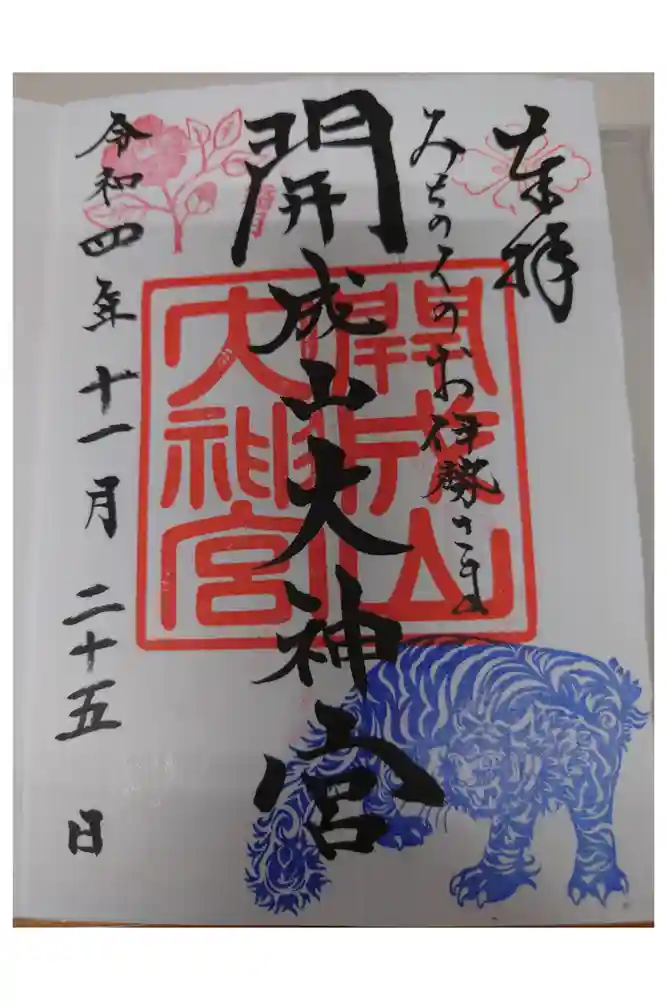 奉拝
みちのくのお伊勢さま
開成山大神宮
開成山
大神宮
令和四年十一月二十五日